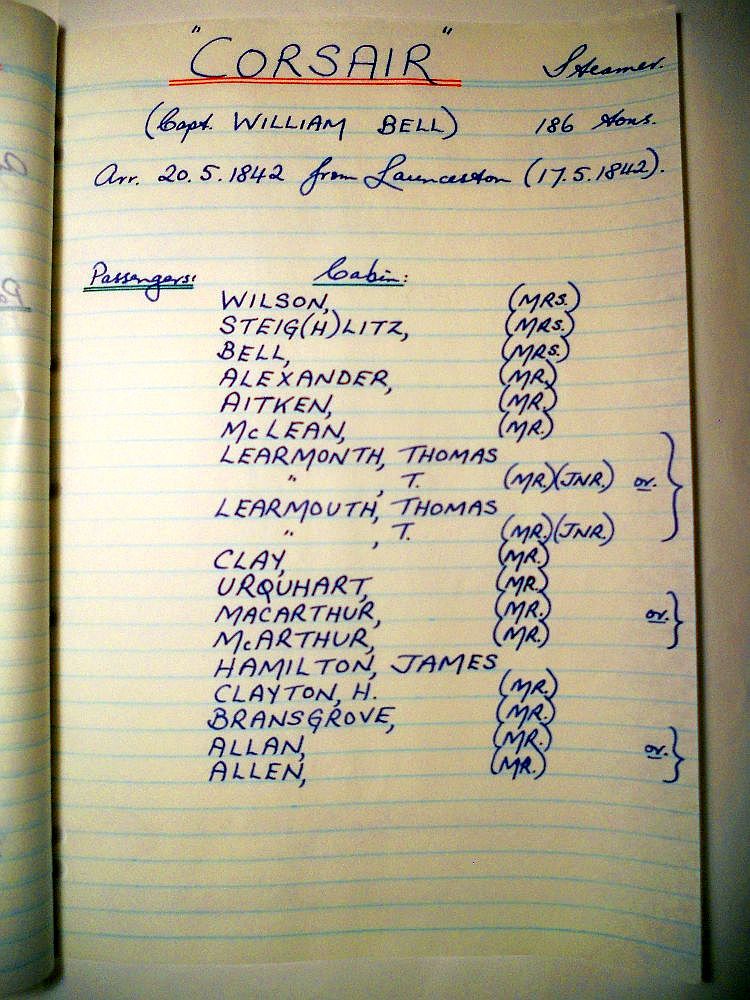 "CORSAIR" Steamer.
(Capt. WILLIAM BELL) 186 tons.
Arr. 20.5.1842 from Launceston (17.5.1842).
Passengers: Cabin:
WILSON, (MRS.)
STEIG(H)LITZ, (MRS.)
BELL, (MRS.)
ALEXANDER, (MR.)
AITKEN, (MR.)
McLEAN, (MR.)
LEARMONTH, THOMAS
" , T. (MR.)(JNR.) or.
LEARMOUTH, THOMAS
" , T. (MR.)(JNR.)
CLAY, (MR.)
URQUHART, (MR.)
MACARTHUR, (MR.) or.
McARTHUR, (MR.)
HAMILTON, JAMES
CLAYTON, H. (MR.)
BRANSGROVE, (MR.)
ALLAN, (MR.) or.
ALLEN, (MR.)